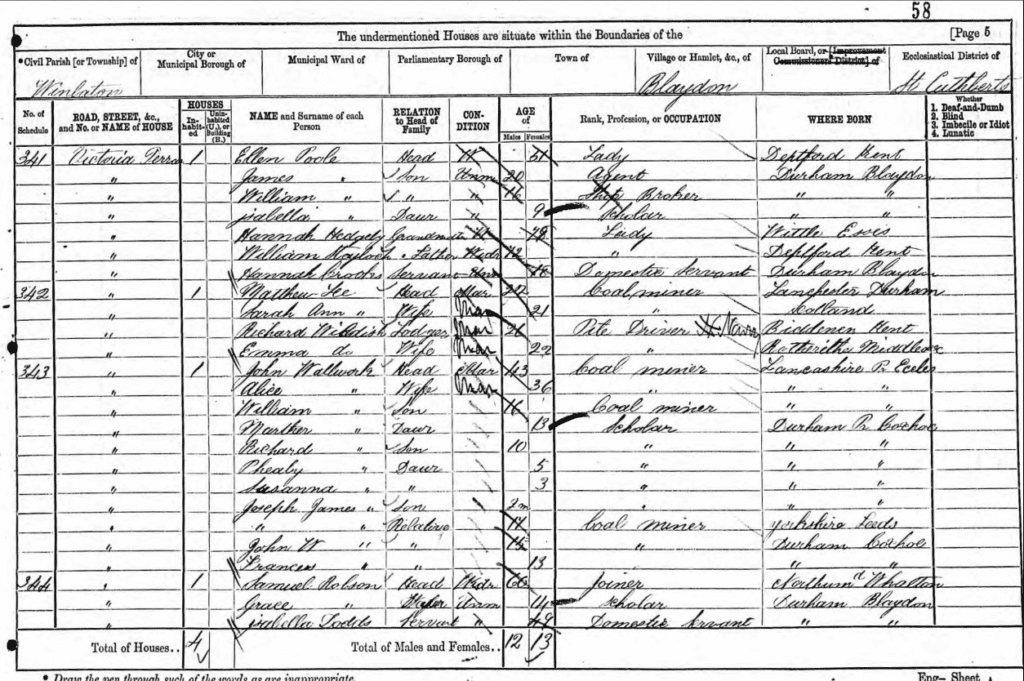 58
The undermentioned Houses are situate within the Boundaries of the [Page 5
*Civil Parish [or Township] of City or Municipal Borough of Municipal Ward of Parliamentary Borough of Town of Village or Hamlet, &c., of Local Board, or [Improvement Commissioners District] of Ecclesiastical District of
Winlaton Blaydon St Cuthberts
No. of Schedule ROAD, STREET, &c., and No. or NAME of HOUSE HOUSES In-habit-ed Unin-habited (U.), or Building (B.) NAME and Surname of each Person RELATION to Head of Family CON-DITION AGE of Males Females Rank, Profession, or OCCUPATION WHERE BORN Whether 1. Deaf-and-Dumb 2. Blind 3. Imbecile or Idiot 4. Lunatic
341 Victoria Terrace 1 Ellen Poole Head W 51 Lady Deptford Kent
" James " Son Unm 20 Agent Durham Blaydon
" William " " " 16 Ship Broker " "
" isabella " Daur " 9 Scholar " "
" Hannah Lady
" William " Father Widr " Deptford Kent
" Hannah Crooks Servant Unm 18 Domestic Servant Durham Blaydon
342 " 1 Matthew Lee Head Mar Coal miner Lanchester Durham
" Sarah Ann " Wife Mar 21 "
" Richard Lodger Mar 26 Kent
" Emma do Wife Mar 22 "
343 " 1 John Wallwork Head Mar 43 Coal miner Lancashire P. Eccles
" Alice " Wife Mar 36 " " "
" William " Son 16 Coal miner " "
" " Daur 13 Scholar Durham P.
" Richard " Son 10 " " "
" Pheaby " Daur 5 " " "
" Susanna " " 3 " " "
" Joseph James " Son 7m " "
" " " Relative 17 Coal miner yorkshire Leeds
" John W " " 15 " Durham
" Frances " " 13 " "
344 " 1 Samuel Robson Head Widr 66 Joiner Northumd Whalton
" Grace " Unm 14 Scholar Durham Blaydon
" isabella Dodds Servant " 49 Domestic Servant " "
Total of Houses.. 4 Total of Males and Females.. 12 13
* Draw the pen through such of the words as are inappropriate. Eng— Sheet